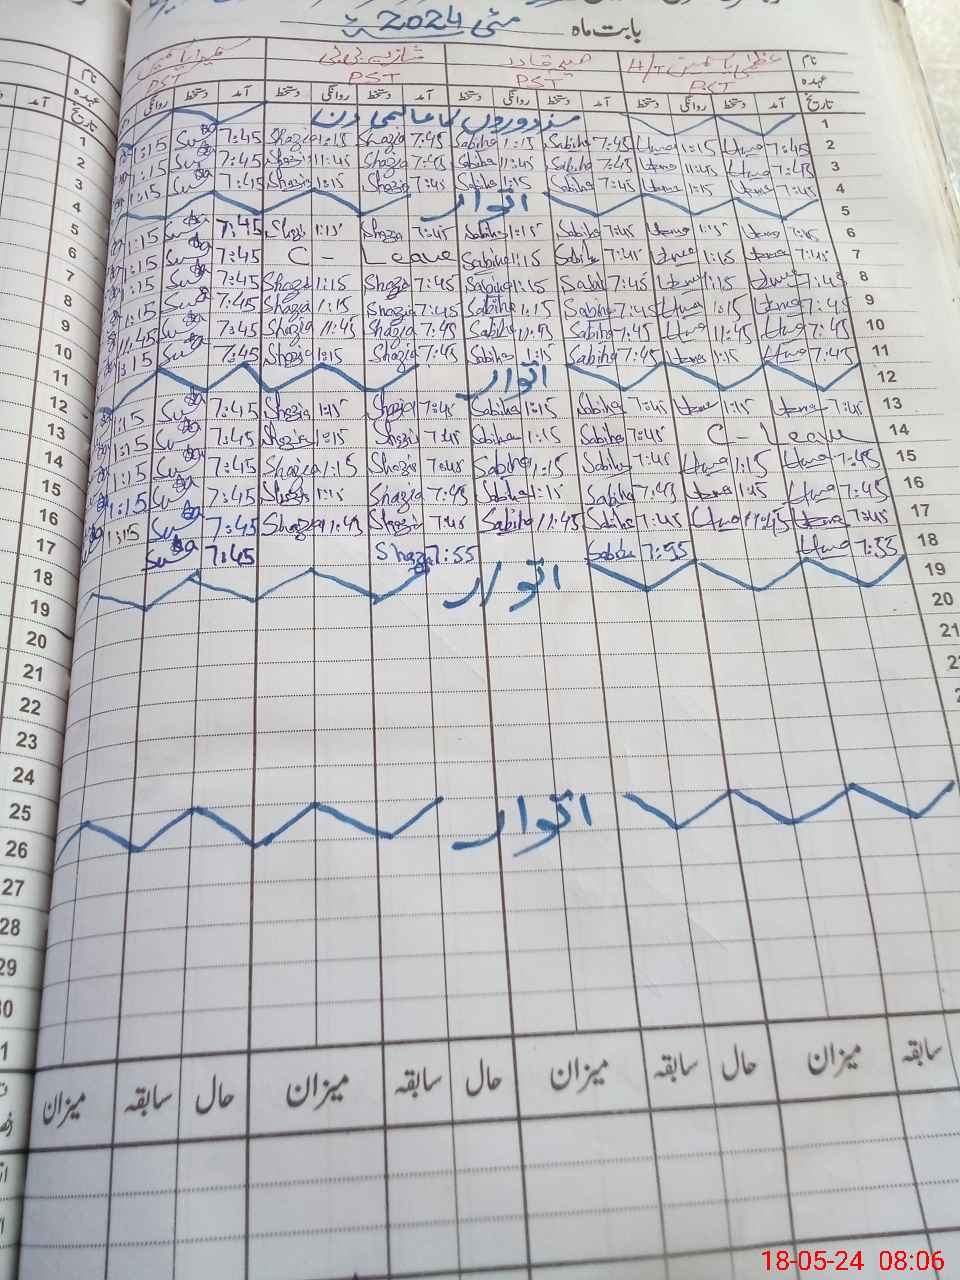 بابت ماہ مئی 2024
نام عظمیٰ یاسمین H/T صبیحہ قادر شازیہ بی بی
عہدہ PST PST PST PST
تاریخ آمد دستخط روانگی دستخط آمد دستخط روانگی دستخط آمد دستخط روانگی دستخط آمد دستخط روانگی
1 مزدوروں کا عالمی دن
2 7:45 Uzma 1:15 Uzma 7:45 Sabiha 1:15 Sabiha 7:45 Shazia 1:15 Shazia 7:45 1:15
3 7:45 Uzma 11:45 Uzma 7:45 Sabiha 11:45 Sabiha 7:45 Shazia 11:45 Shazia 7:45 1:15
4 7:45 Uzma 1:15 Uzma 7:45 Sabiha 1:15 Sabiha 7:45 Shazia 1:15 Shazia 7:45 1:15
5 اتوار
6 7:45 Uzma 1:15 Uzma 7:45 Sabiha 1:15 Sabiha 7:45 Shazia 1:15 Shazia 7:45 1:15
7 7:45 Uzma 1:15 Uzma 7:45 Sabiha 1:15 Sabiha C - Leave 7:45 1:15
8 7:45 Uzma 1:15 Uzma 7:45 Sabiha 1:15 Sabiha 7:45 Shazia 1:15 Shazia 7:45 1:15
9 7:45 Uzma 1:15 Uzma 7:45 Sabiha 1:15 Sabiha 7:45 Shazia 1:15 Shazia 7:45 1:15
10 7:45 Uzma 11:45 Uzma 7:45 Sabiha 11:45 Sabiha 7:45 Shazia 11:45 Shazia 7:45 11:45
11 7:45 Uzma 1:15 Uzma 7:45 Sabiha 1:15 Sabiha 7:45 Shazia 1:15 Shazia 7:45 1:15
12 اتوار
13 7:45 Uzma 1:15 Uzma 7:45 Sabiha 1:15 Sabiha 7:45 Shazia 1:15 Shazia 7:45 1:15
14 C - Leave 7:45 Sabiha 1:15 Sabiha 7:45 Shazia 1:15 Shazia 7:45 1:15
15 7:45 Uzma 1:15 Uzma 7:45 Sabiha 1:15 Sabiha 7:45 Shazia 1:15 Shazia 7:45 1:15
16 7:45 Uzma 1:15 Uzma 7:45 Sabiha 1:15 Sabiha 7:45 Shazia 1:15 Shazia 7:45 1:15
17 7:45 Uzma 11:45 Uzma 7:45 Sabiha 11:45 Sabiha 7:45 Shazia 11:45 Shazia 7:45 1:15
18 7:55 Uzma 7:55 Sabiha 7:55 Shazia 7:45
19 اتوار
20
21
اتوار
سابقہ میزان حال سابقہ میزان حال سابقہ میزان حال سابقہ میزان
نام
عہدہ
تاریخ آمد
1
2
3
4
5
6
7
8
9
10
11
12
13
14
15
16
17
18
19
20
21
22
23
24
25
26
27
28
29
18-05-24 08:06